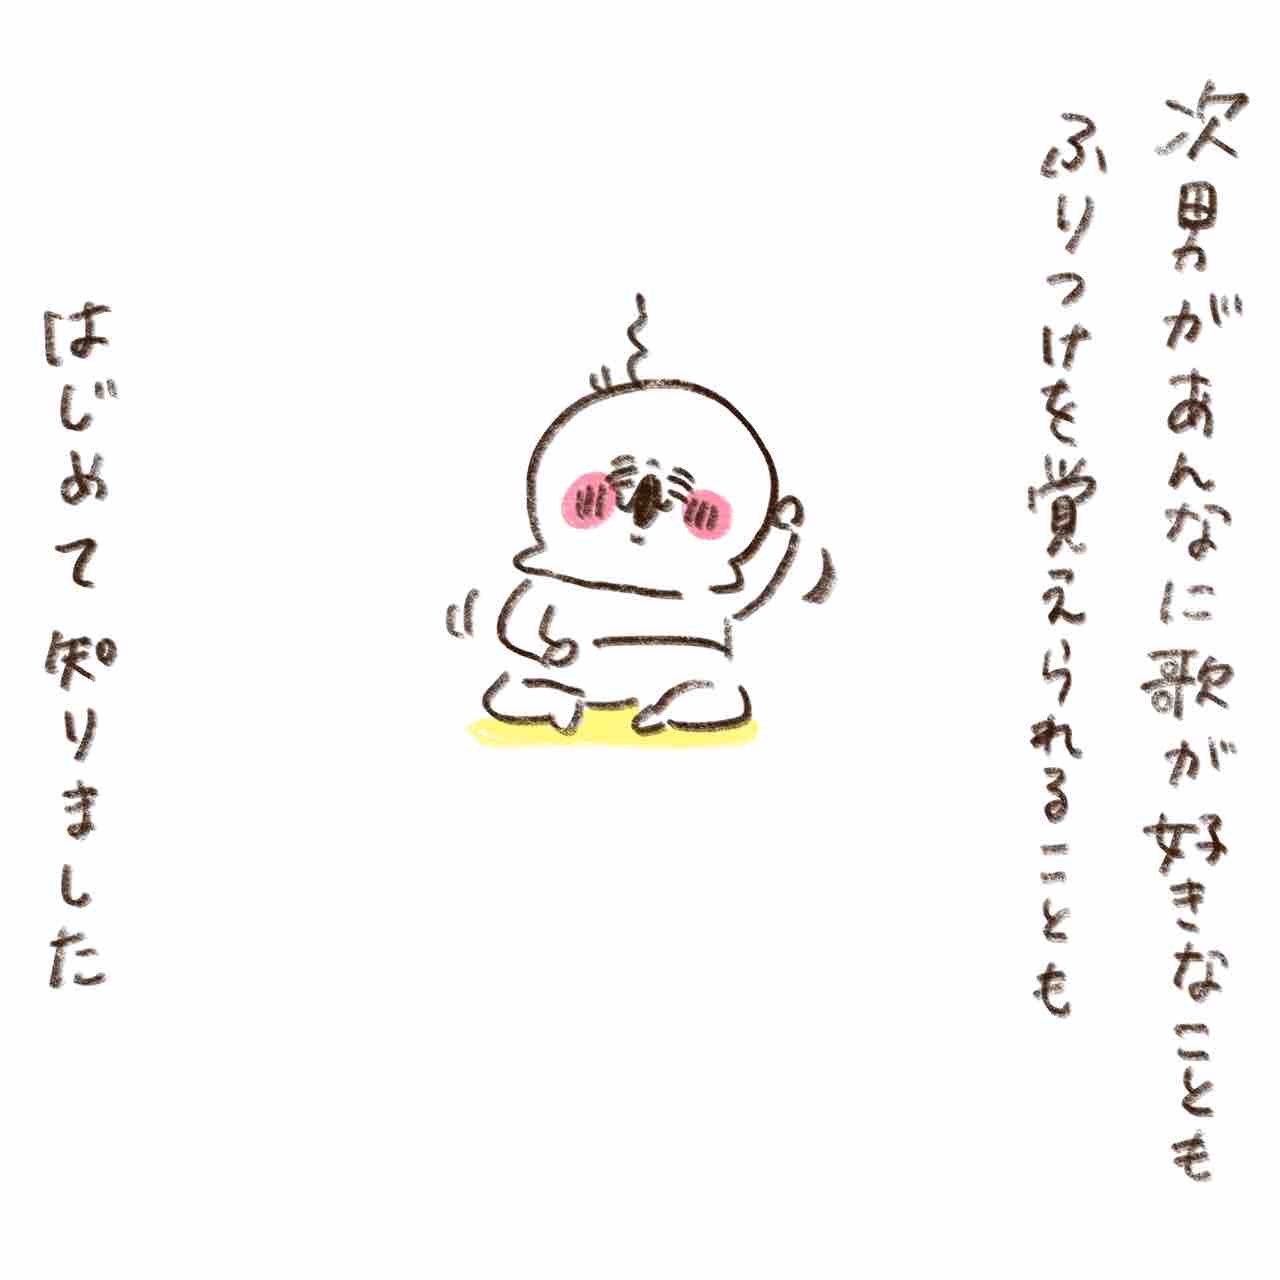 次男があんなに歌が好きなことも
ふりつけを覚えられることも
はじめて知りました